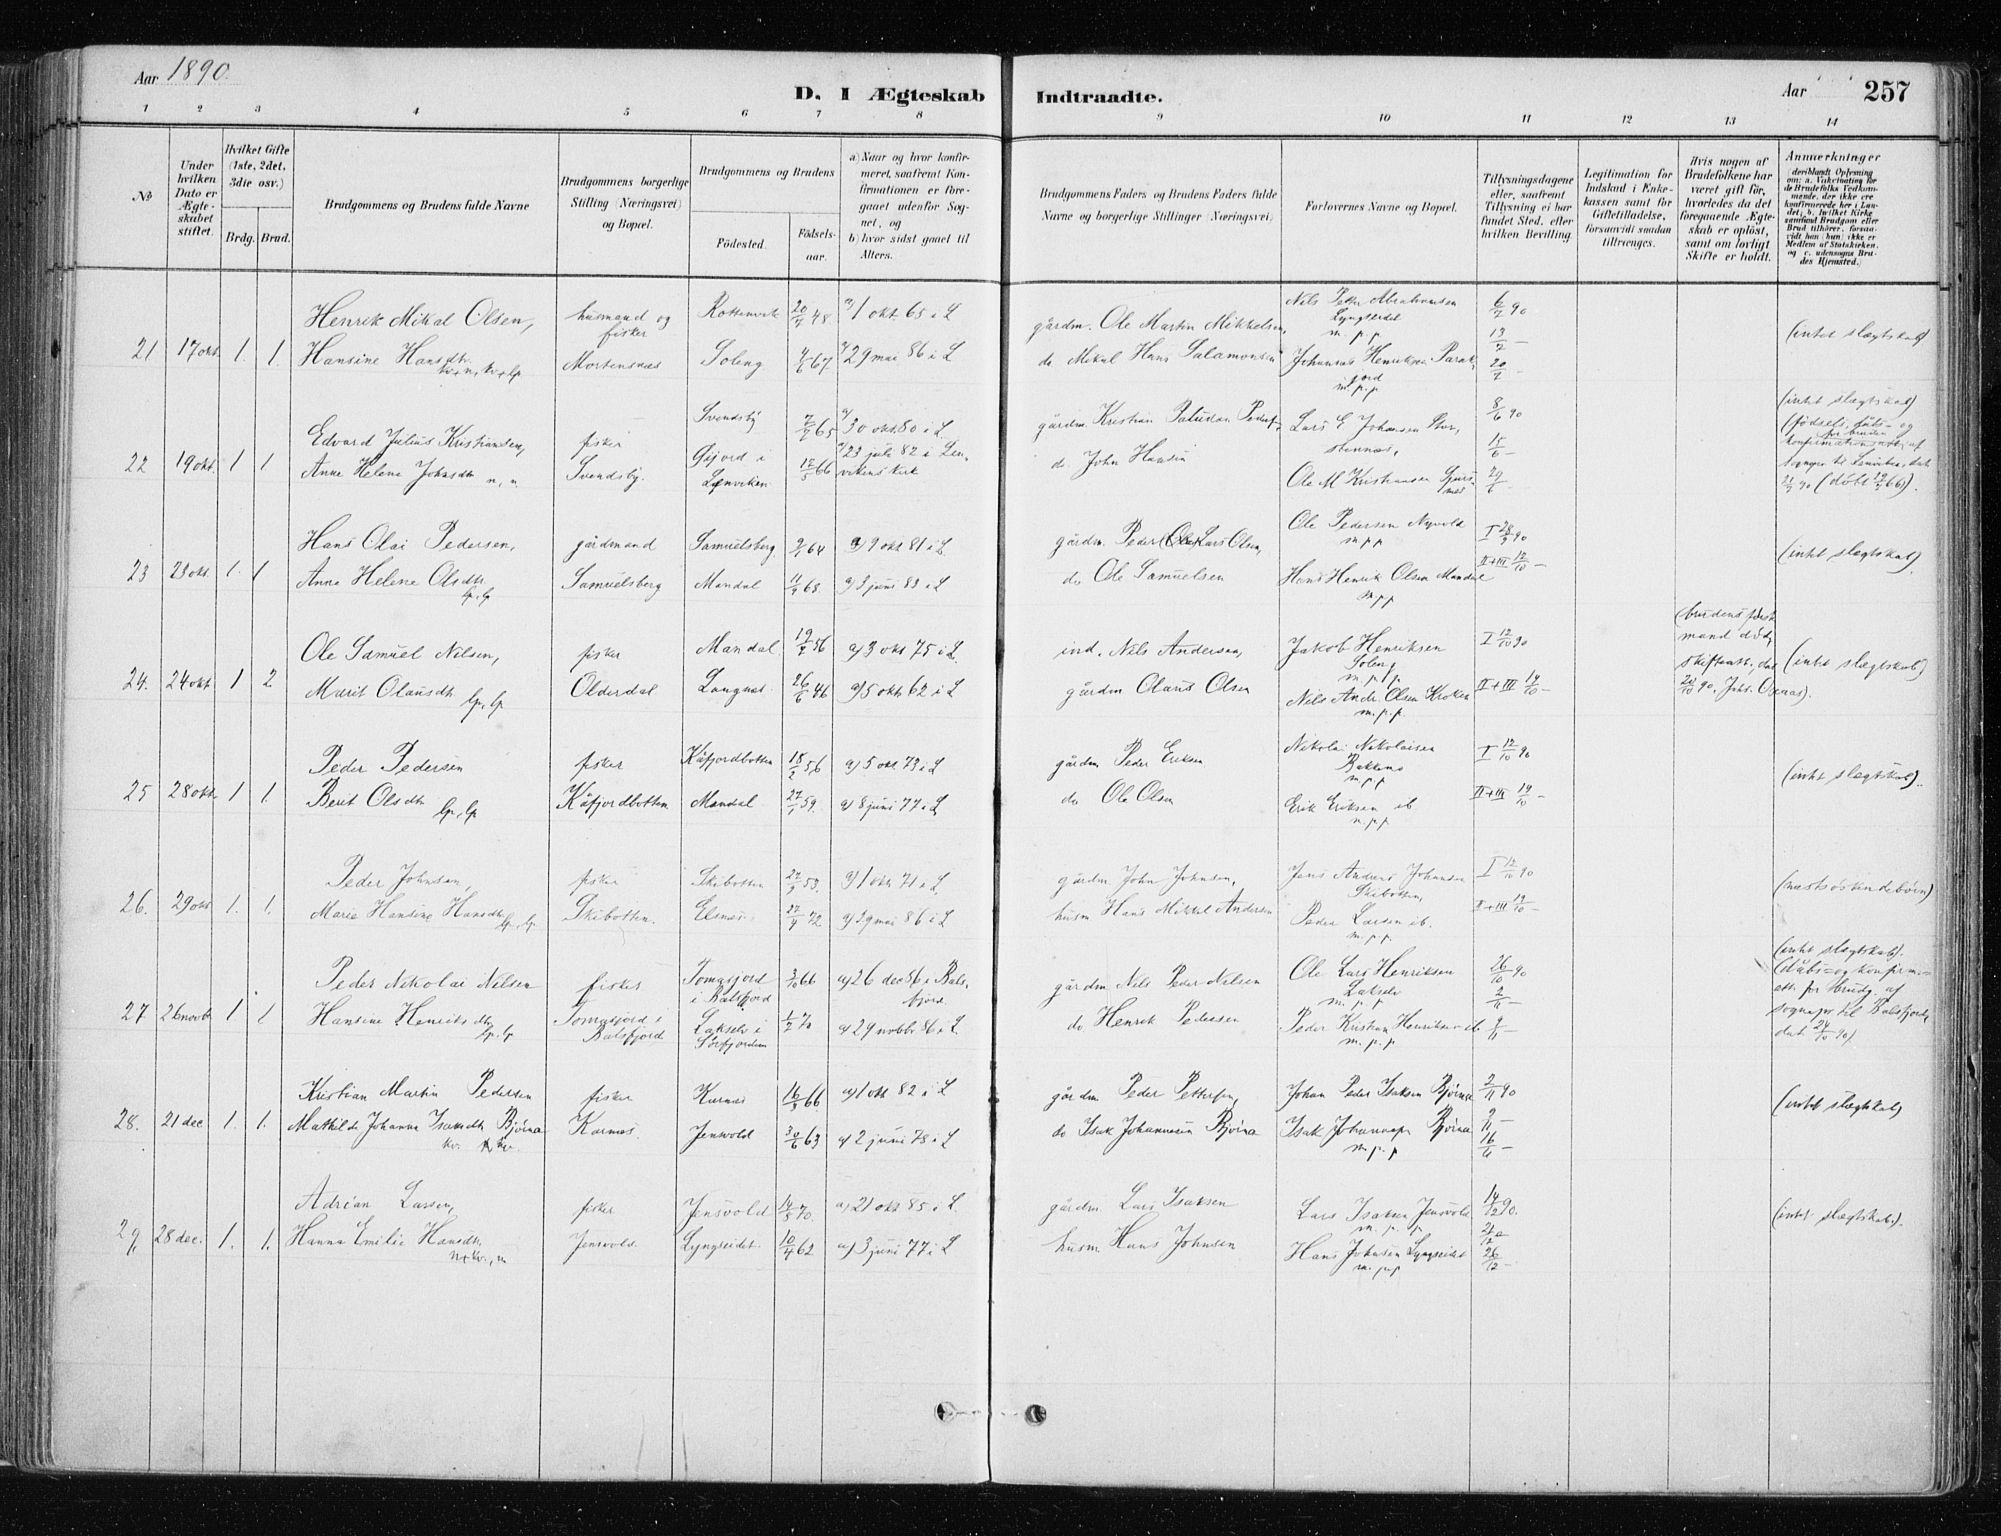 Aar 1890.
D. I Ægteskab Indtraadte.
Aar 257
1 2 3 4 5 6 7 8 9 10 11 12 13 14
№
Under hvilken Dato er Ægteskabet stiftet.
Hvilket Gifte (1ste, 2det, 3die osv.)
Brdg. Brud.
Brudgommens og Brudens fulde Navne
Brudgommens borgerlige Stilling (Næringsvei) og Bopæl.
Brudgommens og Brudens
Födested.
Födselsaar.
a) Naar og hvor konfirmeret, saafremt Konfirmationen er foregaaet udenfor Sognet, og
b) hvor sidst gaaet til Alters.
Brudgommens Faders og Brudens Faders fulde Navne og borgerlige Stillinger (Næringsvei)
Forlovernes Navne og Bopæl.
Tillysningsdagene eller, saafremt Tillysning ei har fundet Sted, efter hvilken Bevilling
Legitimation for Indskud i Enkekassen samt for Giftetilladelse, forsaavidt saadan tiltrænges.
Hvis nogen af Brudefolkene har været gift för, hvorledes da det foregaaende Ægteskab er oplöst, samt om lovligt Skifte er holdt.
Anmærkninger
21 17 okt. 1. 1.
Henrik Mikal Olsen, husmand og fisker Rottenvik 20/7 48 a) 1 okt. 65 i L
gårdm. Ole Martin Mikkelsen, Nils Peter Abrahamsen Lyngseidet m.p.p 6/7 90 13/7 –
Hansine Hansdtr. Mortensnæs Soleng 4/6 67 29 mai 86 i L
do Mikal Hans Salamonsen Johannes Henriksen m.p.p 20/7 –
(intet slægtskab)
22 19 okt. 1 1
Edvard Julius Kristiansen, fisker Svendsby 7/7 65 a) 30 okt. 80 i L.
gårdm. Kristian Paludan Peders. Lars E Johansen Storstennes, 8/6 90 15/6 –
Anne Helene Johnsdtr n, n Svendsby. Gifjord i Lenviken 15/5 66 23 juli 82 i Lenvikens kirk
do John Hansen Ole M Kristiansen 29/6 –
(intet slægtskab)
(fødsels, dåbs- og konfirmationsatt. for bruden af sognepr. til Lenviken, dat 21/7 90 (døbt 66).
23 23 okt. 1. 1
Hans Olai Pedersen, gårdmand Samuelsberg 9/1 64 a) 9 okt 81 i L
gårdm. Peder Lars Olsen, Ole Pedersen Nyvold m.p.p I 28/9 90
Anne Helene Olsdtr. lp, lp Samuelsberg Mandal 11/9 68. a) 3 juni 83 i L
do Ole Samuelsen Hans Henrik Olsen Mandal m.p.p II+III 12/10 –
(intet slægtskab)
24. 24 okt 1 2
Ole Samuel Nilsen, fisker Mandal 19/7 56 a) 3 okt 75 i L.
ind. Nils Andersen, Jakob Henriksen Soleng m.p.p I 12/10 90
Marit Olausdtr lp, lp Olderdal Langnæs 26/6 46 a) 5 okt. 62 i L
gårdm Olaus Olsen Nils Andr. Olsen Kroken m.p.p. II+III 19/10 –
(brudens første mand død, skifteatt. dat 20/10 90.
(intet slægtskab)
25 28 okt. 1 1.
Peder Pedersen fisker Kåfjordbotten 18/2 56 a) 5 okt. 73 i L
gårdm Peder Eriksen Nikolai Nikolaisen Bakkens m.p.p I 12/10 90
Berit Olsdtr lp, lp Kåfjordbotten Mandal 27/1 59. a) 8 juni 77 i L
do Ole Olsen Erik Eriksen ib m.p.p II+III 19/10
(intet slægtskab).
26. 29 okt 1. 1.
Peder Johnsen, fisker Skibotten 27/9 53. a) 1 okt. 71 i L
gårdm. John Johnsen, Jens Andreas Johansen Skibotten, I 12/10 90
Marie Hansine Hansdtr. lp, lp. Skibotten. Elsnes 27/4 72 a) 29 mai 86 i L
husm Hans Mikkel Andersen Peder Larsen ib. m.p.p. II+III 19/10 –
(næstsøskendebørn)
27 26 novbr 1 1
Peder Nikolai Nilsen fisker Tomasjord i Balsfjord 3/10 66 a) 26 dec 86 i Balsfjord
gårdm. Nils Peder Nilsen Ole Lars Henriksen Lakselv m.p.p 26/10 90 2/11 –
Hansine Henriksdtr. lp, lp Tomasjord i Balsfjord Lakselv i Sørfjorden 1/2 70 a) 29 novbr 86 i L.
do Henrik Pedersen Peder Kristian Henriksen ib m.p.p 9/11 –
(intet slægtskab).
(dåbs- og konfirm. att. for brudg. af sognepr til Balsfjord, dat 24/10 90)
28. 21 dec 1. 1.
Kristian Martin Pedersen fisker Karnæs 16/3 66 a) 1 okt 82 i L
gårdm Peder Pettersen, Johan Peder Isaksen Bjørnæ 2/11 90
Mathilde Johanna Isaksdtr Bjørnæ Karnæs. Jensvold 30/6 63 a) 2 juni 78 i L
do Isak Johannesen Bjørnæ Isak Bjørnæ m.p.p 9/11 – 16/11 –
(intet slægtskab)
29. 28 dec. 1. 1.
Adrian Larsen, fisker Jensvold 14/5 70. a) 21 okt. 85 i L.
gårdm. Lars Isaksen Lars Isaksen Jensvold m.p.p 14/12 90.
Hanna Emilie Hansdtr. Jensvold. Lyngseidet. 10/4 62 a) 3 juni 77 i L
husm Hans Johnsen Hans Johnsen Lyngseidet m.p.p 21/12 – 26/12 –
(intet slægtskab).